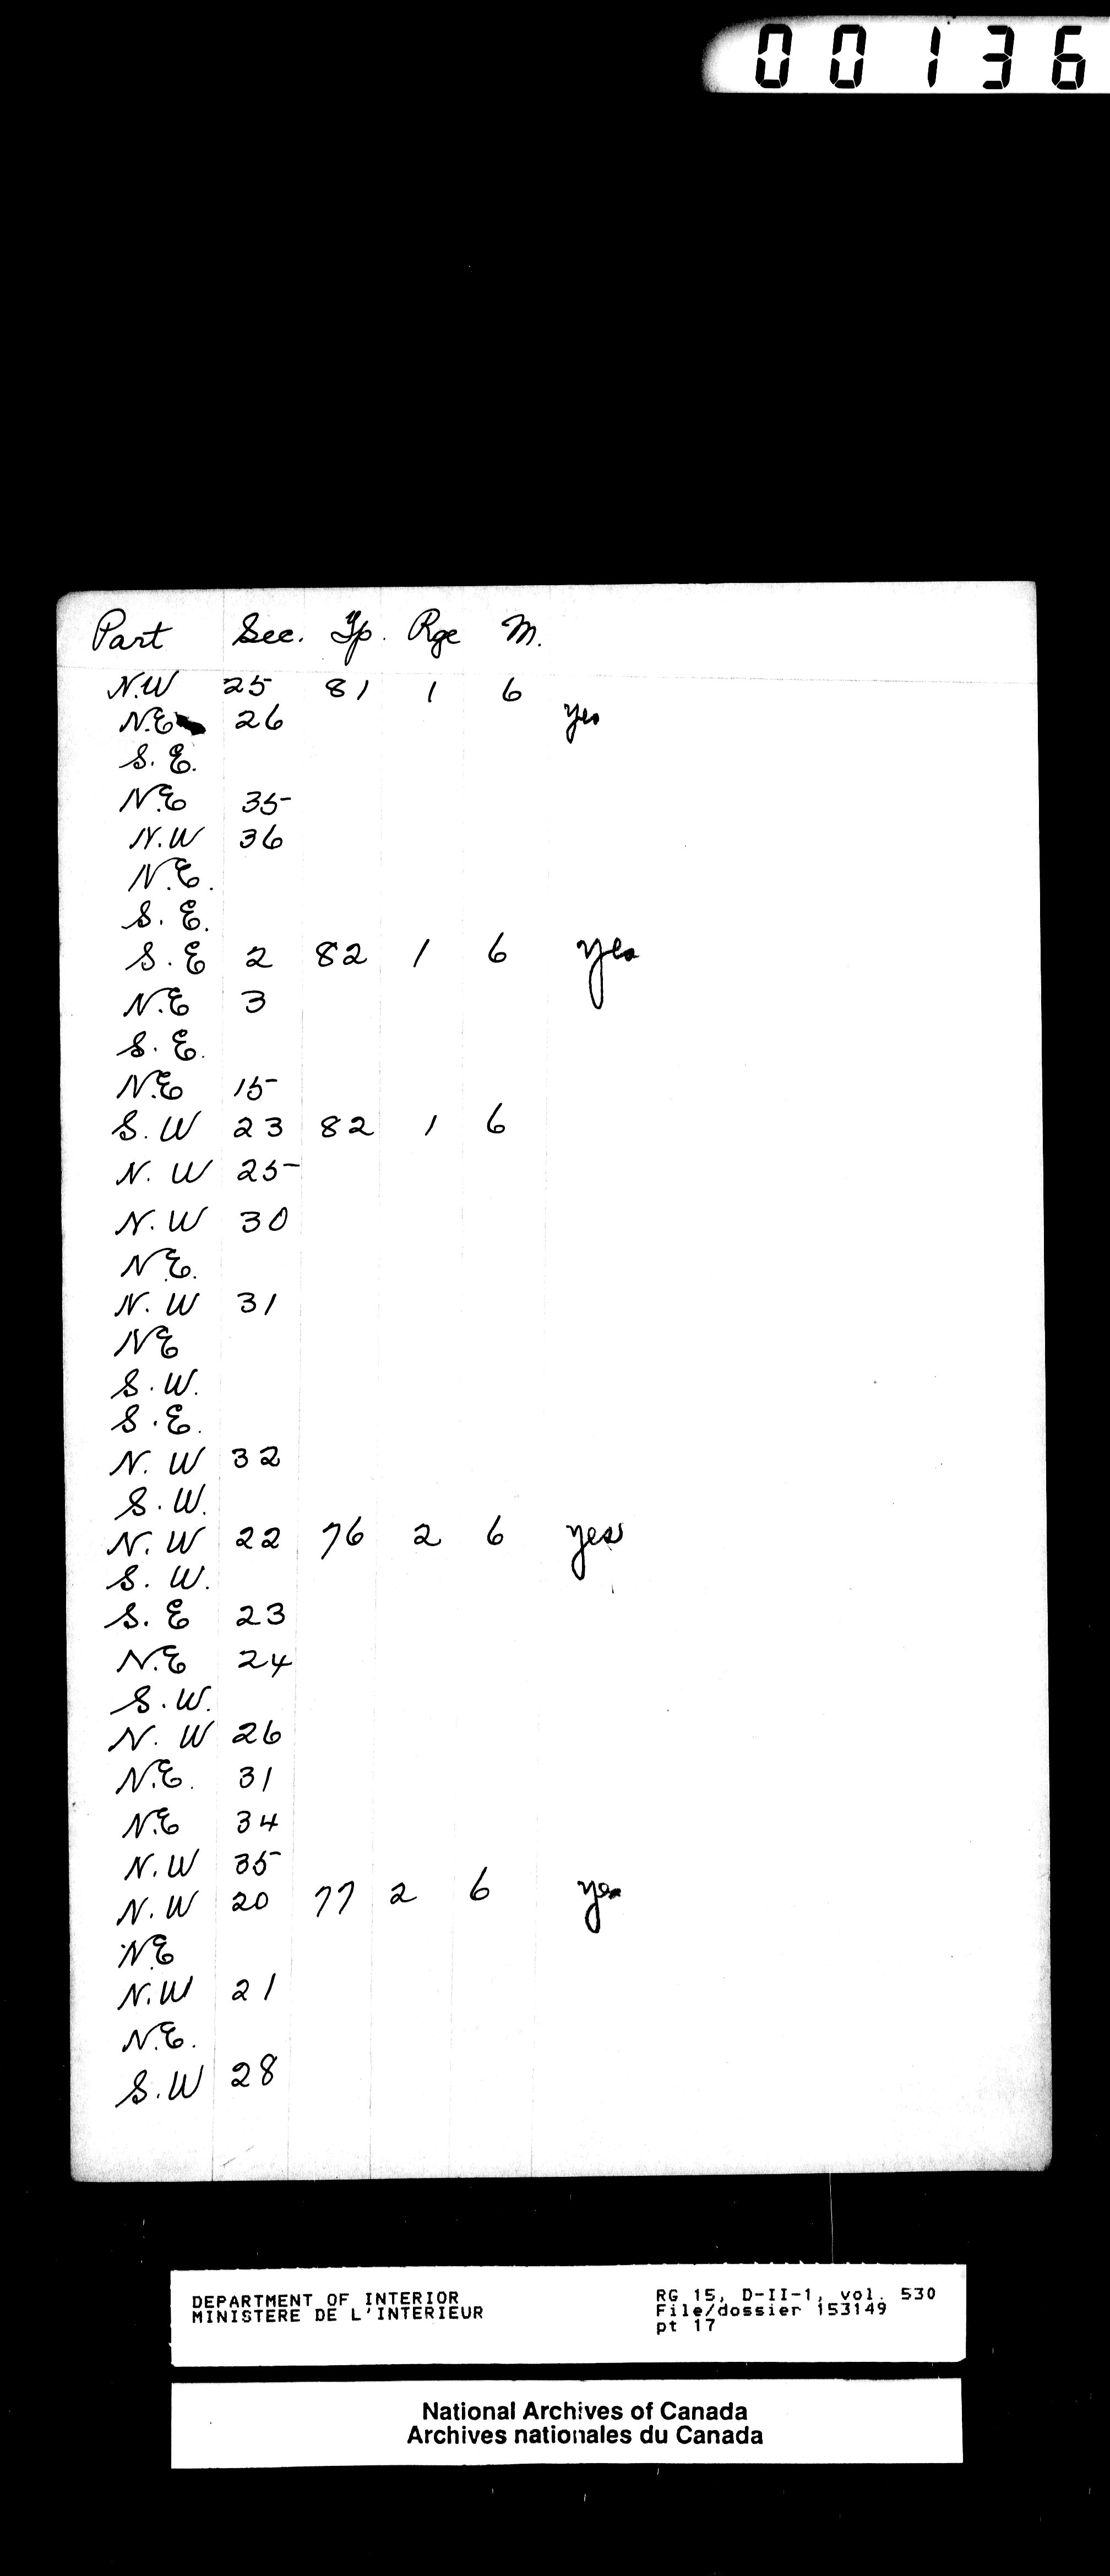 00136
Part Sec. Tp. Rge M.
N.W 25 81 1 6
N.E 26 yes
S.E.
N.E 35
N.W 36
N.E.
S.E.
S.E 2 82 1 6 yes
N.E 3
S.E.
N.E 15
S.W 23 82 1 6
N.W 25
N.W 30
N.E.
N.W 31
N.E
S.W.
S.E.
N.W 32
S.W.
N.W 22 76 2 6 yes
S.W.
S.E 23
N.E 24
S.W.
N.W 26
N.E. 31
N.E 34
N.W 35
N.W 20 77 2 6 yes
N.E
N.W 21
N.E.
S.W 28
DEPARTMENT OF INTERIOR RG 15, D-II-1, vol. 530
MINISTERE DE L'INTERIEUR File/dossier 153149
pt 17
National Archives of Canada
Archives nationales du Canada